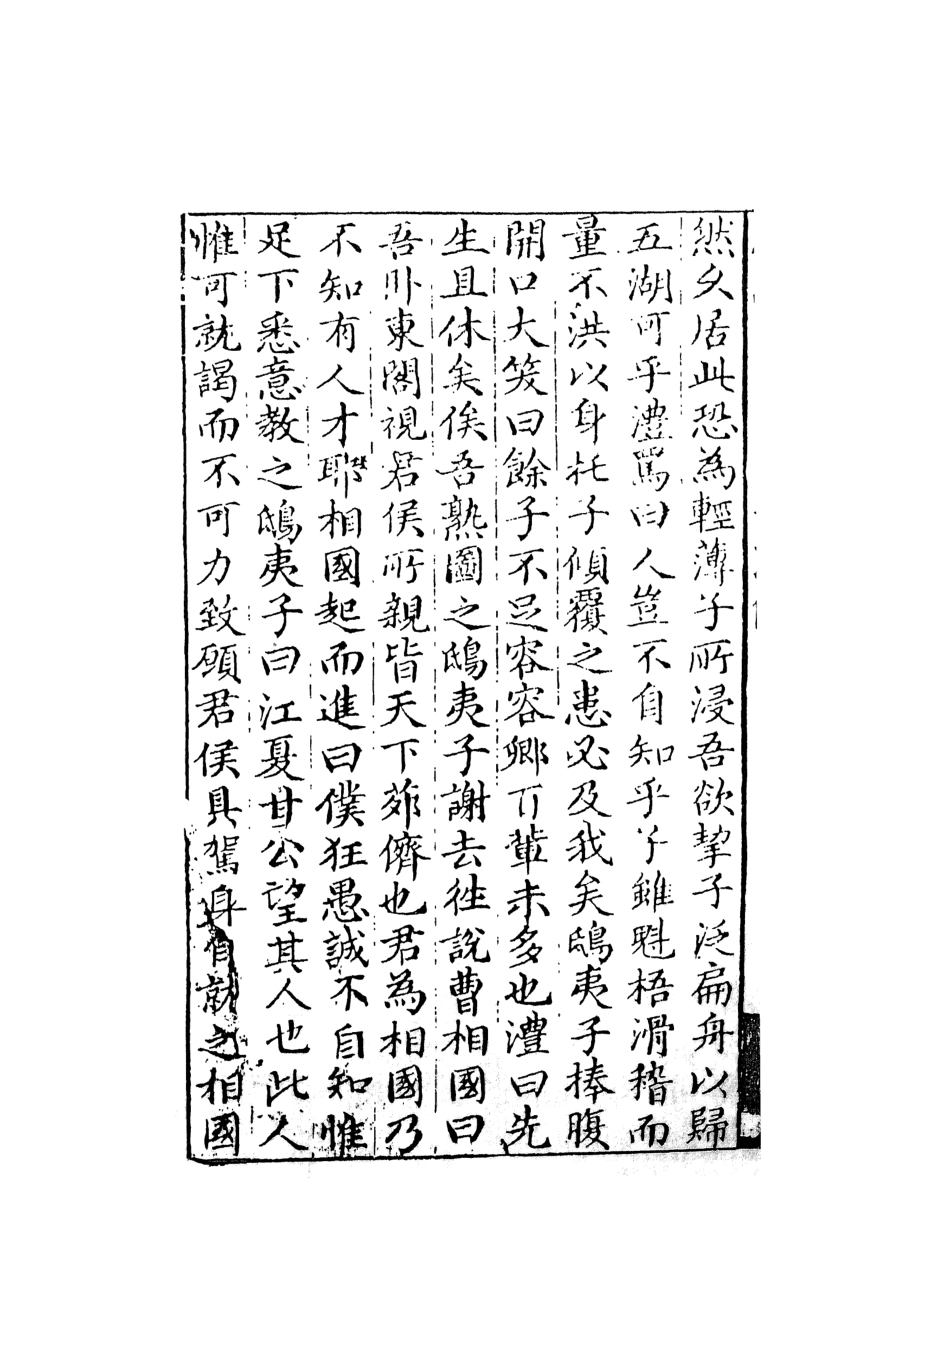 然久居此恐為輕薄子所浸吾欲挈子泛扁舟以歸
五湖可乎澧罵曰人豈不自知乎子雖魁梧滑稽而
量不洪以身托子傾覆之患必及我矣鴟夷子捧腹
開口大笑曰餘子不足容容卿百輩未多也澧曰先
生且休矣俟吾熟圖之鴟夷子謝去徃說曹相國曰
吾卧東閣視君侯所親皆天下茆儕也君為相國乃
不知有人才耶相國起而進曰僕狂愚誠不自知惟
足下悉意教之鴟夷子曰江夏甘公望其人也此人
惟可就謁而不可力致願君侯具駕身自就之相國